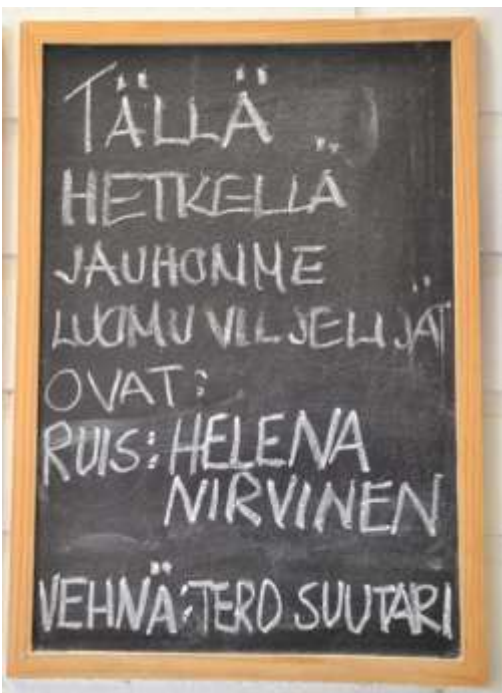 TÄLLÄ
HETKELLÄ
JAUHOMME
LUOMUVILJELIJÄT
OVAT:
RUIS: HELENA
NIRVINEN
VEHNÄ: TERO SUUTARI